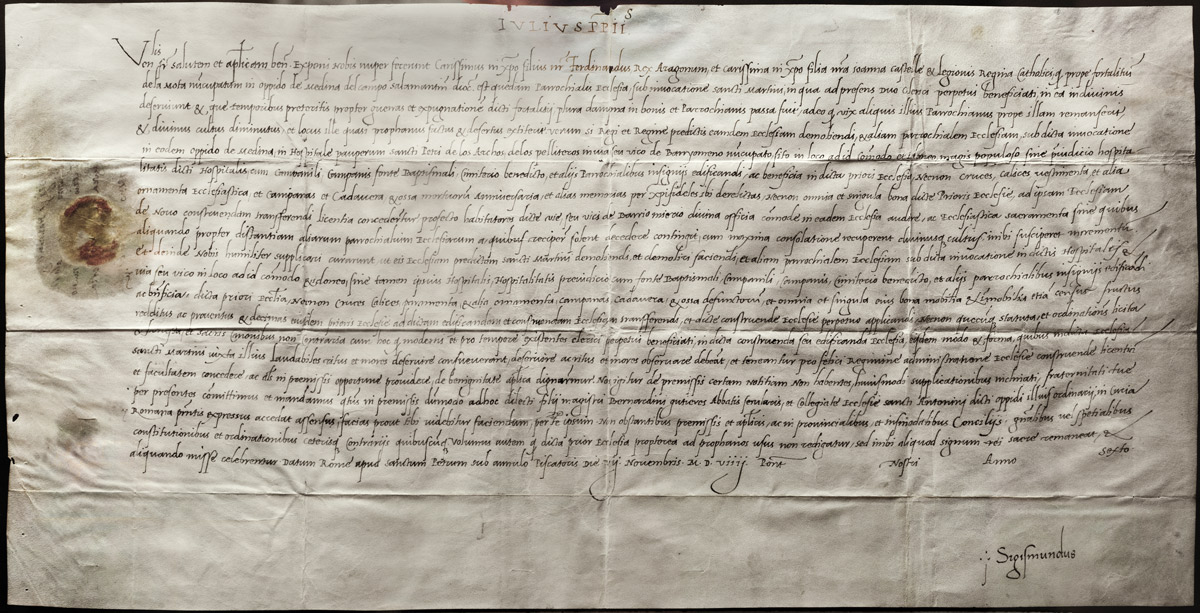 IVLIVS PP II S
Ven fr salutem et aplicam ben. Exponi Nobis nuper fecerunt Carissimus in xpo filius nr Ferdinandus Rex Aragonum, et carissima in xpo filia nra Ioanna castelle & legionis Regina Catholici, q prope fortalitium
dela Mota nuncupatum in oppido de Medina del campo salamantin dioc. est quedam Parrochialis Ecclesia, sub invocatione sancti Martini, in qua ad presens duo Clerici perpetui beneficiati, in ea in divinis
deserviunt & que temporibus preteritis propter guerras et expugnationem dicti fortalitij plura damna in bonis et Parrochianis passa fuit, adeo q vix aliquis illius Parrochianus prope illam romanserit
& divinus cultus diminutus, et locus ille quasi prophanus factus & desertus extiterit verum si Regi et Regine predictis eamdem Ecclesiam demoliendi, & aliam parrochialem Ecclesiam, sub dicta invocatione
in eodem oppido de Medina, in Hospitale pauperum sancti Petri de los Archos delos pelliteros in via seu vico de Barrionuevo nuncupato sito in loco ad id comodo et magis populoso sine prejudicio hospita
litatis dicti Hospitalis, cum Campanili Campanis fonte Baptismali, Cimiterio benedicto, et alijs Parrochialibus insignijs edificandi, ac beneficia in dicta priori Ecclesia, Necnon Cruces, calices vestimenta et alia
ornamenta Ecclesiastica et Campanas et Cadavera, & ossa mortuorum Anniversaria, et alias memorias per xpifideles ibi derelictas Necnon omnia et singula bona dicte Prioris Ecclesie, ad ipsam Ecclesiam
de Novo construendam transferendi licentia concederetur profecto habitatores dicte vie, seu vici de Barrionuevo divina officia comode in eadem Ecclesia audire, ac Ecclesiastica sacramenta sine quibus
aliquando propter distantiam aliarum parrochialium Ecclesiarum a quibus recipere solent decedere contingit, cum maxima consolatione recuperent divinusq cultus inibi susciperet incrementum
Et deinde Nobis humiliter supplicari curarunt ut eis Ecclesiam predictam sancti Martini demoliendi, et demoliri faciendi, et aliam parrochialem Ecclesiam sub dicta invocatione in dictis Hospitali &
via seu vico in loco ad id comodo & idoneo, sine tamen ipsius Hospitalis, Hospitalitatis preiudicio cum fonte Baptismali, Campanili, Campanis, Cimiterio benedicto, et alijs parrochialibus insignijs edificandi
ac beneficia, dicta priori Ecclesia, Necnon Cruces Calices ornamenta, & alia ornamenta, campanas, Cadavera, & ossa defunctorum, et omnia et singula eius bona mobilia & immobilia etiam census fructus
redditus ac proventus & decimas eiusdem prioris Ecclesie ad dictam edificandam et construendam Ecclesiam transferendi, et dicte construende Ecclesie perpetuo applicandi, Necnon quecunq statuta, et ordinationes licita
et honesta, et sacris Canonibus non contraria cum hoc q moderni et pro tempore existentes clerici perpetui beneficiati, in dicta construenda seu edificanda Ecclesia, eisdem modo & forma, quibus in dicta Ecclesia
sancti Martini iuxta illius laudabiles ritus et mores deservire consueverant, deservire ac ritus et mores observare debeant, et teneantur pro felici Regimine administratione Ecclesie construende licentiam
et facultatem concedere, ac als in premissis oportune providere, de benignitate aplica dignaremur. Nos igitur de premissis certam notitiam Non habentes, huiusmodi supplicationibus inclinati, fraternitati tue
per presentes committimus et mandamus, qtus in premissis dummodo ad hoc dilecti filij magistri Bernardini gutieres Abbatis secularis, et Collegiate Ecclesie sancti Antonini dicti oppidi illius ordinarij, in curia
Romana pntis expressus accedat assensus, facias prout tibi videbitur faciendum, per te ipsum. Non obstantibus premissis et aplicis, ac in provincialibus, et sinodalibus Concilijs, gnalibus vel specialibus
constitutionibus et ordinationibus ceterisq contrarijs quibuscuq. Volumus autem q dicta prior Ecclesia propterea ad prophanos usus non redigatur. sed inibi aliquod signum rei sacre remaneat, &
aliquando misse celebrentur Datum Rome apud sanctum Petrum sub annulo Piscatoris Die iij Novembris. M. D. viiij. Pont Nostri Anno Sexto
Sigismundus